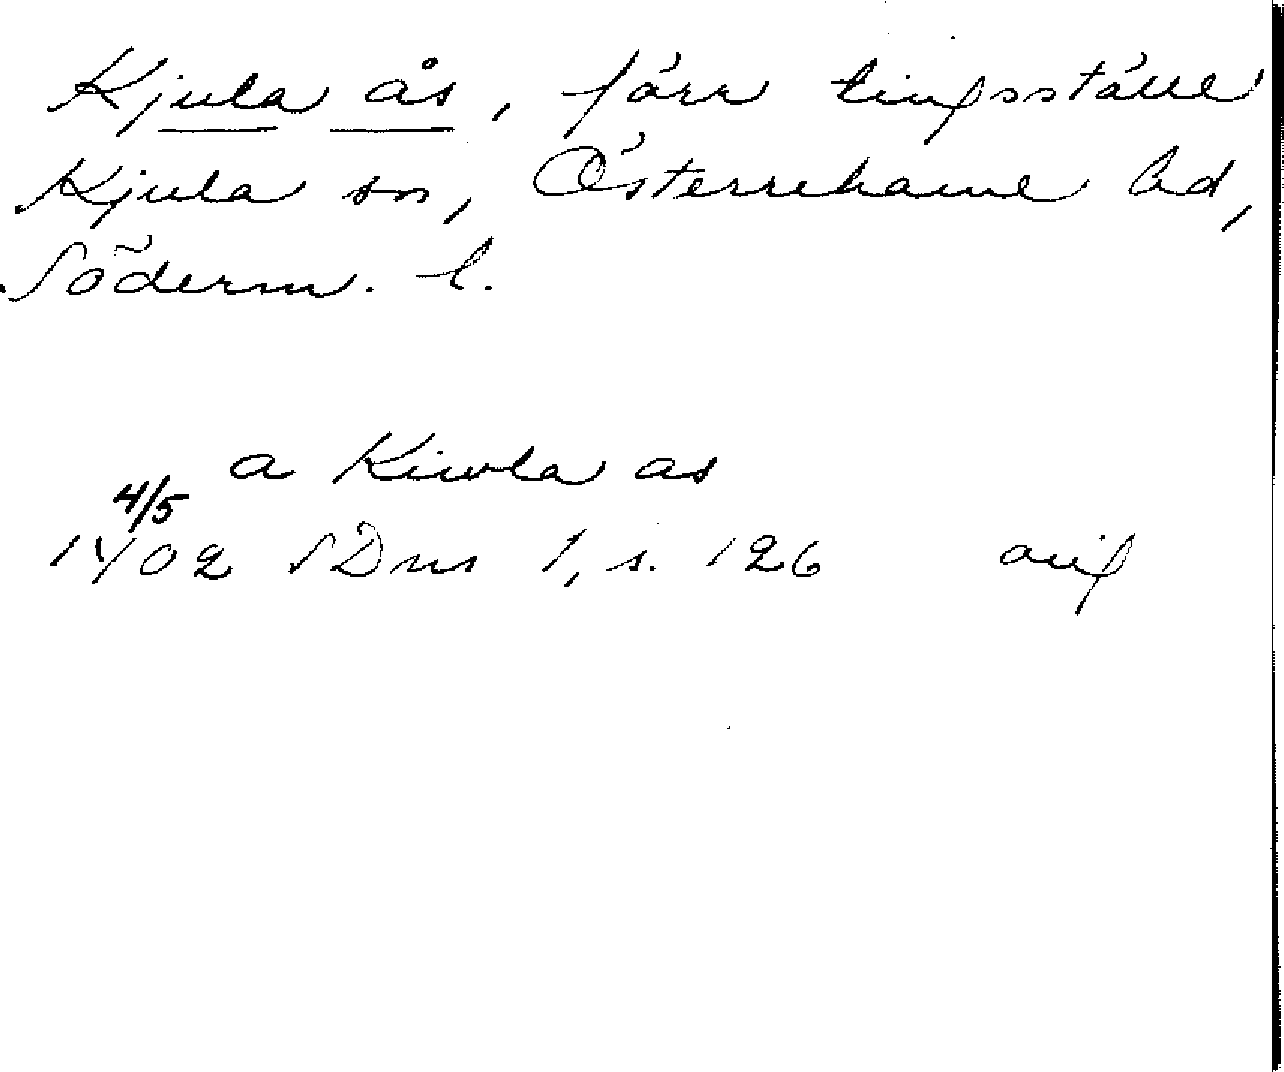 Kjula ås, förr tingsställe
Kjula sn, Österrekarne hd,
Söderm. l.
a Kiwla as
4/5
1402 SDns 1, s. 126 avig